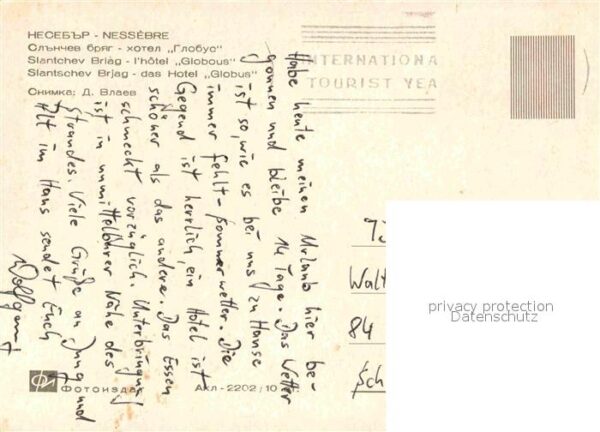 НЕСЕБЪР - NESSÈBRE
Слънчев бряг - хотел „Глобус"
Slantchev Briág - l'hôtel „Globous"
Slantschev Brjag - das Hotel „Globus"
Снимка: Д. Влаев
INTERNATIONA
TOURIST YEA
Habe heute meinen Urlaub hier be-
gonnen und bleibe 14 Tage. Das Wetter
ist so, wie es bei uns zu Hause
immer fehlt - Sommerwetter. Die
Gegend ist herrlich, ein Hotel ist
schöner als das andere. Das Essen
schmeckt vorzüglich. Unterbringung
ist in unmittelbarer Nähe des
Strandes. Viele Grüße an Jung und
Alt im Haus sendet Euch
Wolfgang
Walt
84
Sch
privacy protection
Datenschutz
Фотоизда
Акл - 2202/10